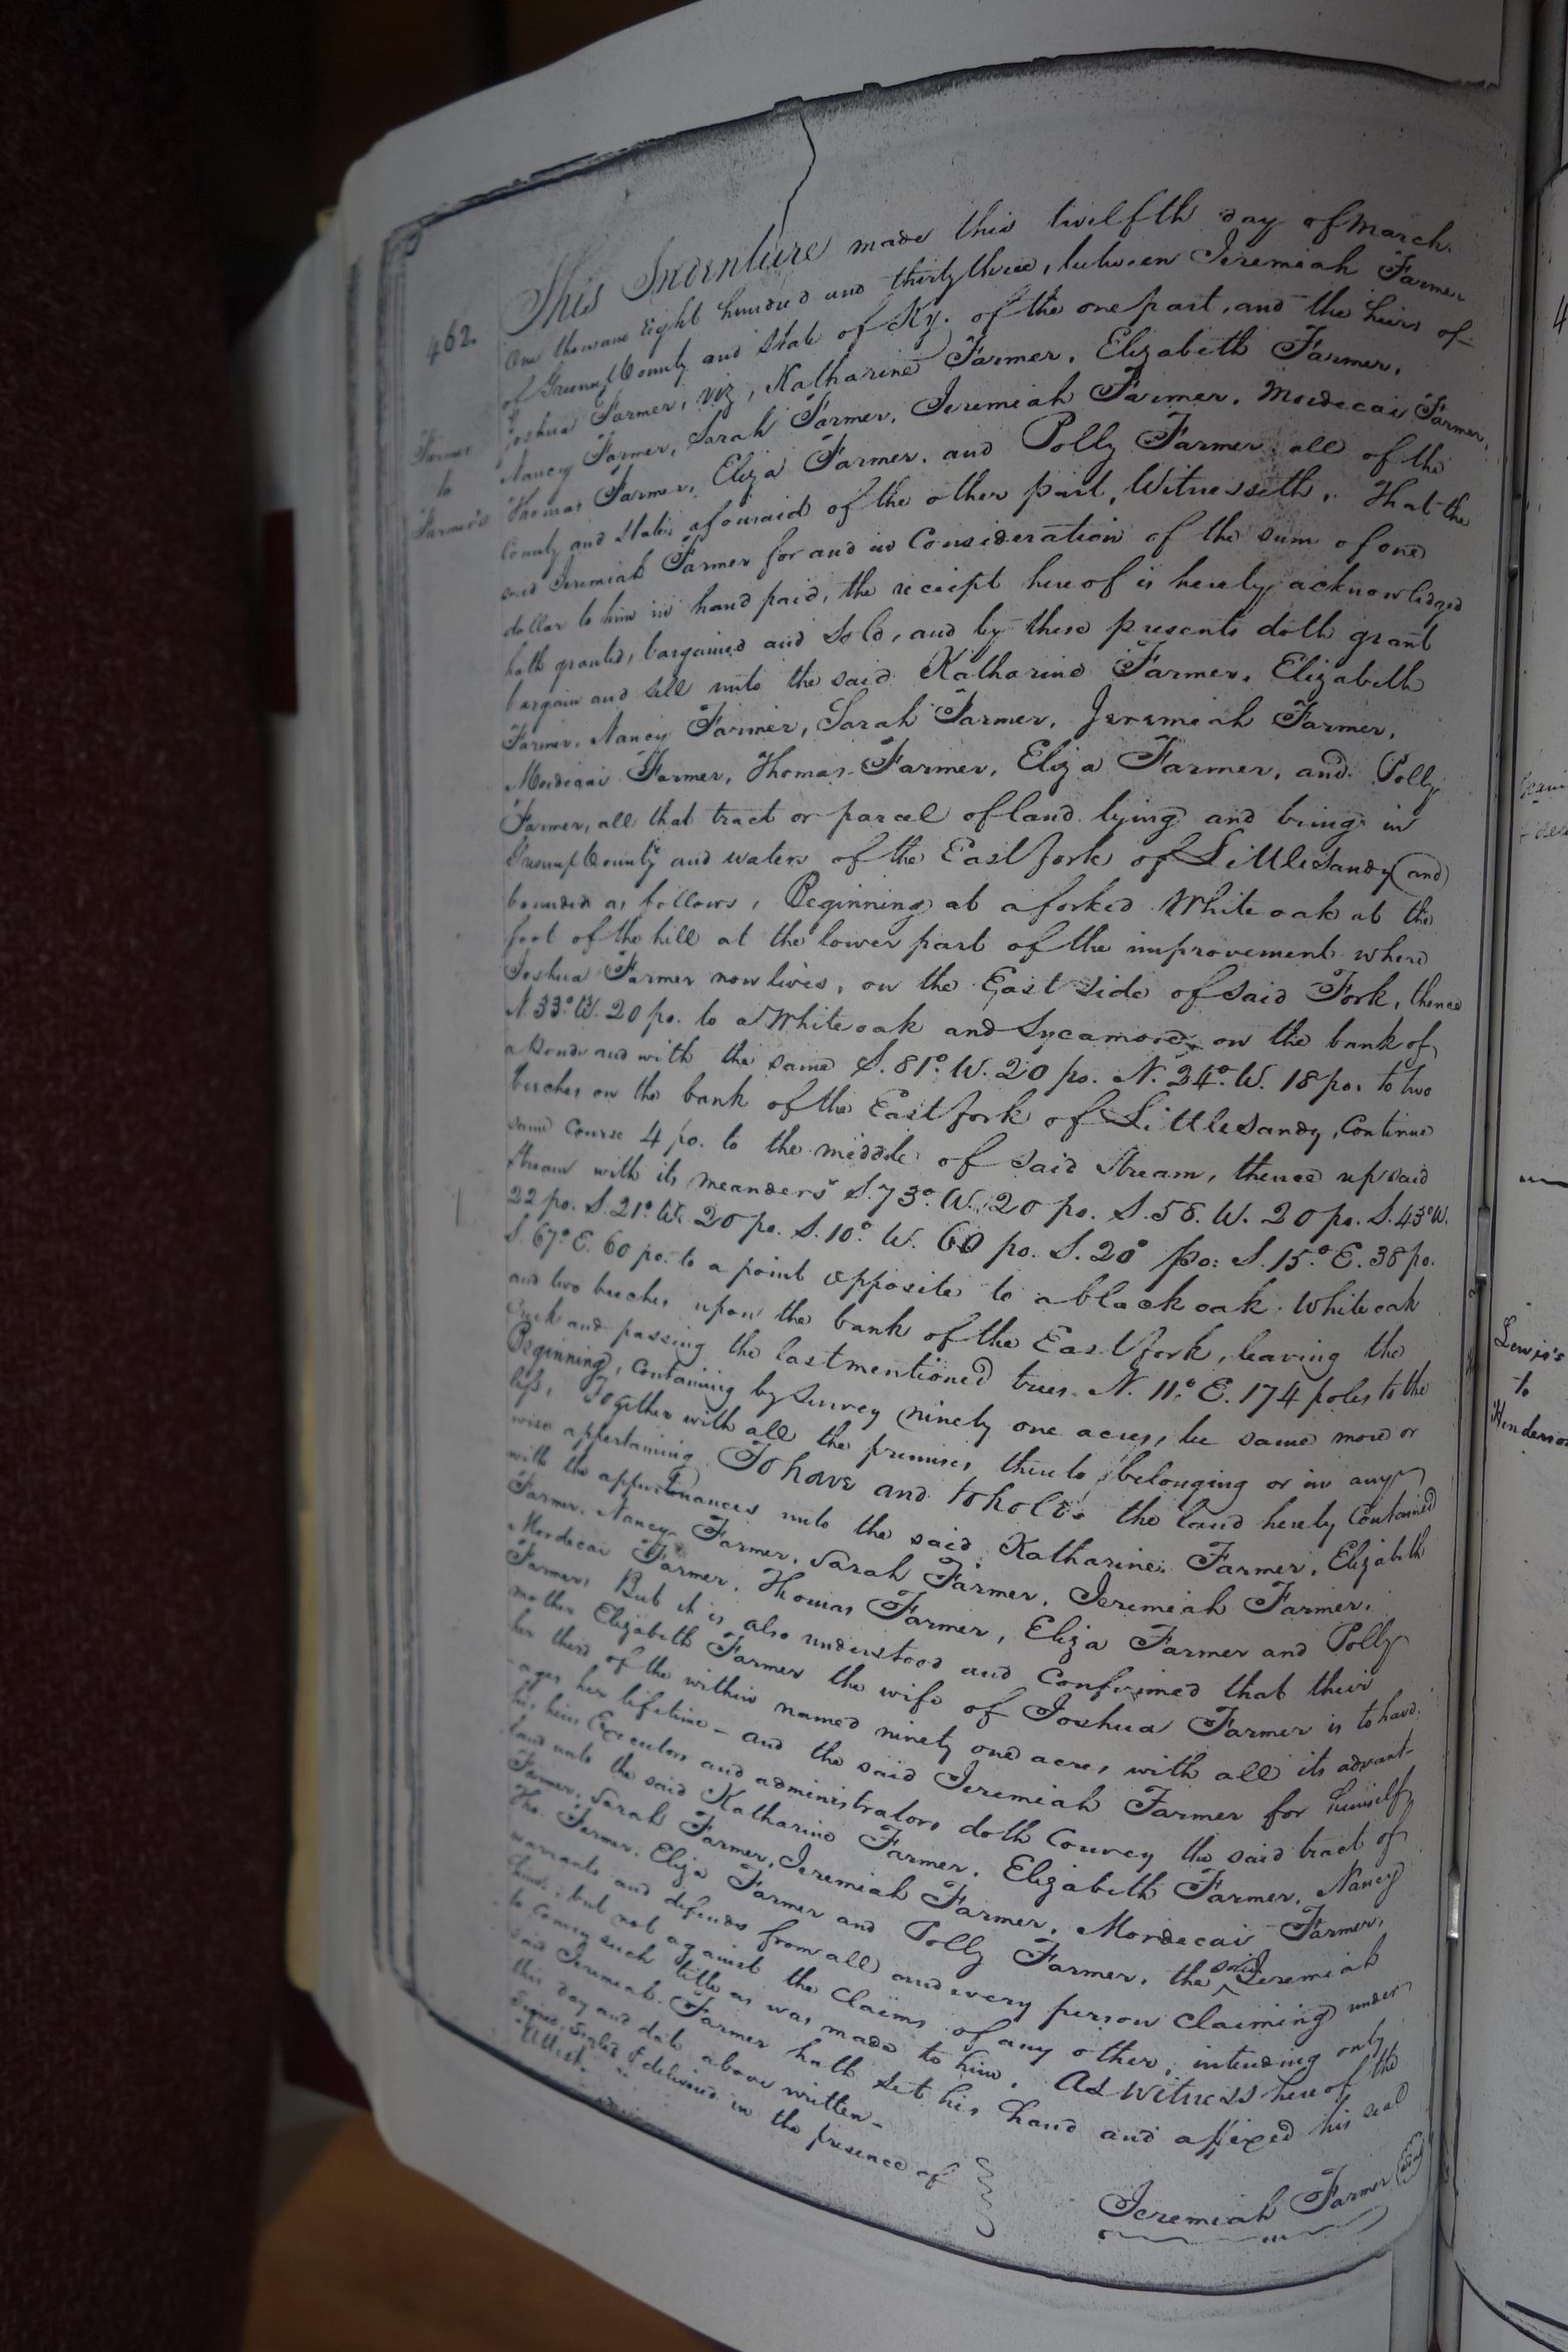 462.
Farmer
to
Farmer's
This Indenture made this twelfth day of March.
One thousand Eight hundred and thirty three, between Jeremiah Farmer
of Greenup County and State of Ky. of the one part, and the heirs of
Joshua Farmer, viz, Katharine Farmer, Elizabeth Farmer,
Nancy Farmer, Sarah Farmer, Jeremiah Farmer, Mordecai Farmer,
Thomas Farmer, Eliza Farmer, and Polly Farmer all of the
County and State aforesaid of the other part, Witnesseth, That the
said Jeremiah Farmer for and in Consideration of the sum of one
dollar to him in hand paid, the receipt hereof is hereby acknowledged
hath granted, bargained and Sold, and by these presents doth grant
bargain and sell unto the said Katharine Farmer, Elizabeth
Farmer, Nancy Farmer, Sarah Farmer, Jeremiah Farmer,
Mordecai Farmer, Thomas Farmer, Eliza Farmer, and Polly
Farmer, all that tract or parcel of land lying and being in
Greenup County and waters of the East fork of Little Sandy (and)
bounded as follows, Beginning at a forked White oak at the
foot of the hill at the lower part of the improvement where
Joshua Farmer now lives, on the East side of said Fork, thence
N. 33° W. 20 po. to a White oak and Sycamore, on the bank of
a Pond and with the same S. 81° W. 20 po. N. 24° W. 18 po. to two
beeches on the bank of the East fork of Little Sandy, Continue
same Course 4 po. to the middle of said Stream, thence up said
stream with its meanders S. 73° W. 20 po. S. 58. W. 20 po. S. 43° W.
22 po. S. 21° W. 20 po. S. 10° W. 60 po. S. 20° po: S. 15° E. 38 po.
S. 67° E. 60 po. to a point opposite to a black oak, White oak
and two beeches upon the bank of the East fork, leaving the
Creek and passing the last mentioned trees N. 11° E. 174 poles to the
Beginning, Containing by Survey ninety one acres, be same more or
less, Together with all the premises thereto belonging or in any
wise appertaining To have and to hold the land hereby Contained
with the appurtenances unto the said Katharine Farmer, Elizabeth
Farmer, Nancy Farmer, Sarah Farmer, Jeremiah Farmer,
Mordecai Farmer, Thomas Farmer, Eliza Farmer and Polly
Farmer, But it is also understood and Confirmed that their
mother Elizabeth Farmer the wife of Joshua Farmer is to have
her third of the within named ninety one acres, with all its advant-
-ages her lifetime - and the said Jeremiah Farmer for himself,
his heirs Executors and administrators doth Convey the said tract of
land unto the said Katharine Farmer, Elizabeth Farmer, Nancy
Farmer, Sarah Farmer, Jeremiah Farmer, Mordecai Farmer,
Tho. Farmer, Eliza Farmer and Polly Farmer, the said Jeremiah
warrants and defends from all and every person Claiming under
him; but not against the Claims of any other, intending only
to Convey such title as was made to him. As Witness hereof the
said Jeremiah Farmer hath set his hand and affixed his seal
this day and date above written-
Signed, Sealed & delivered in the presence of
Attest.
Jeremiah Farmer seal
Lewis's
to